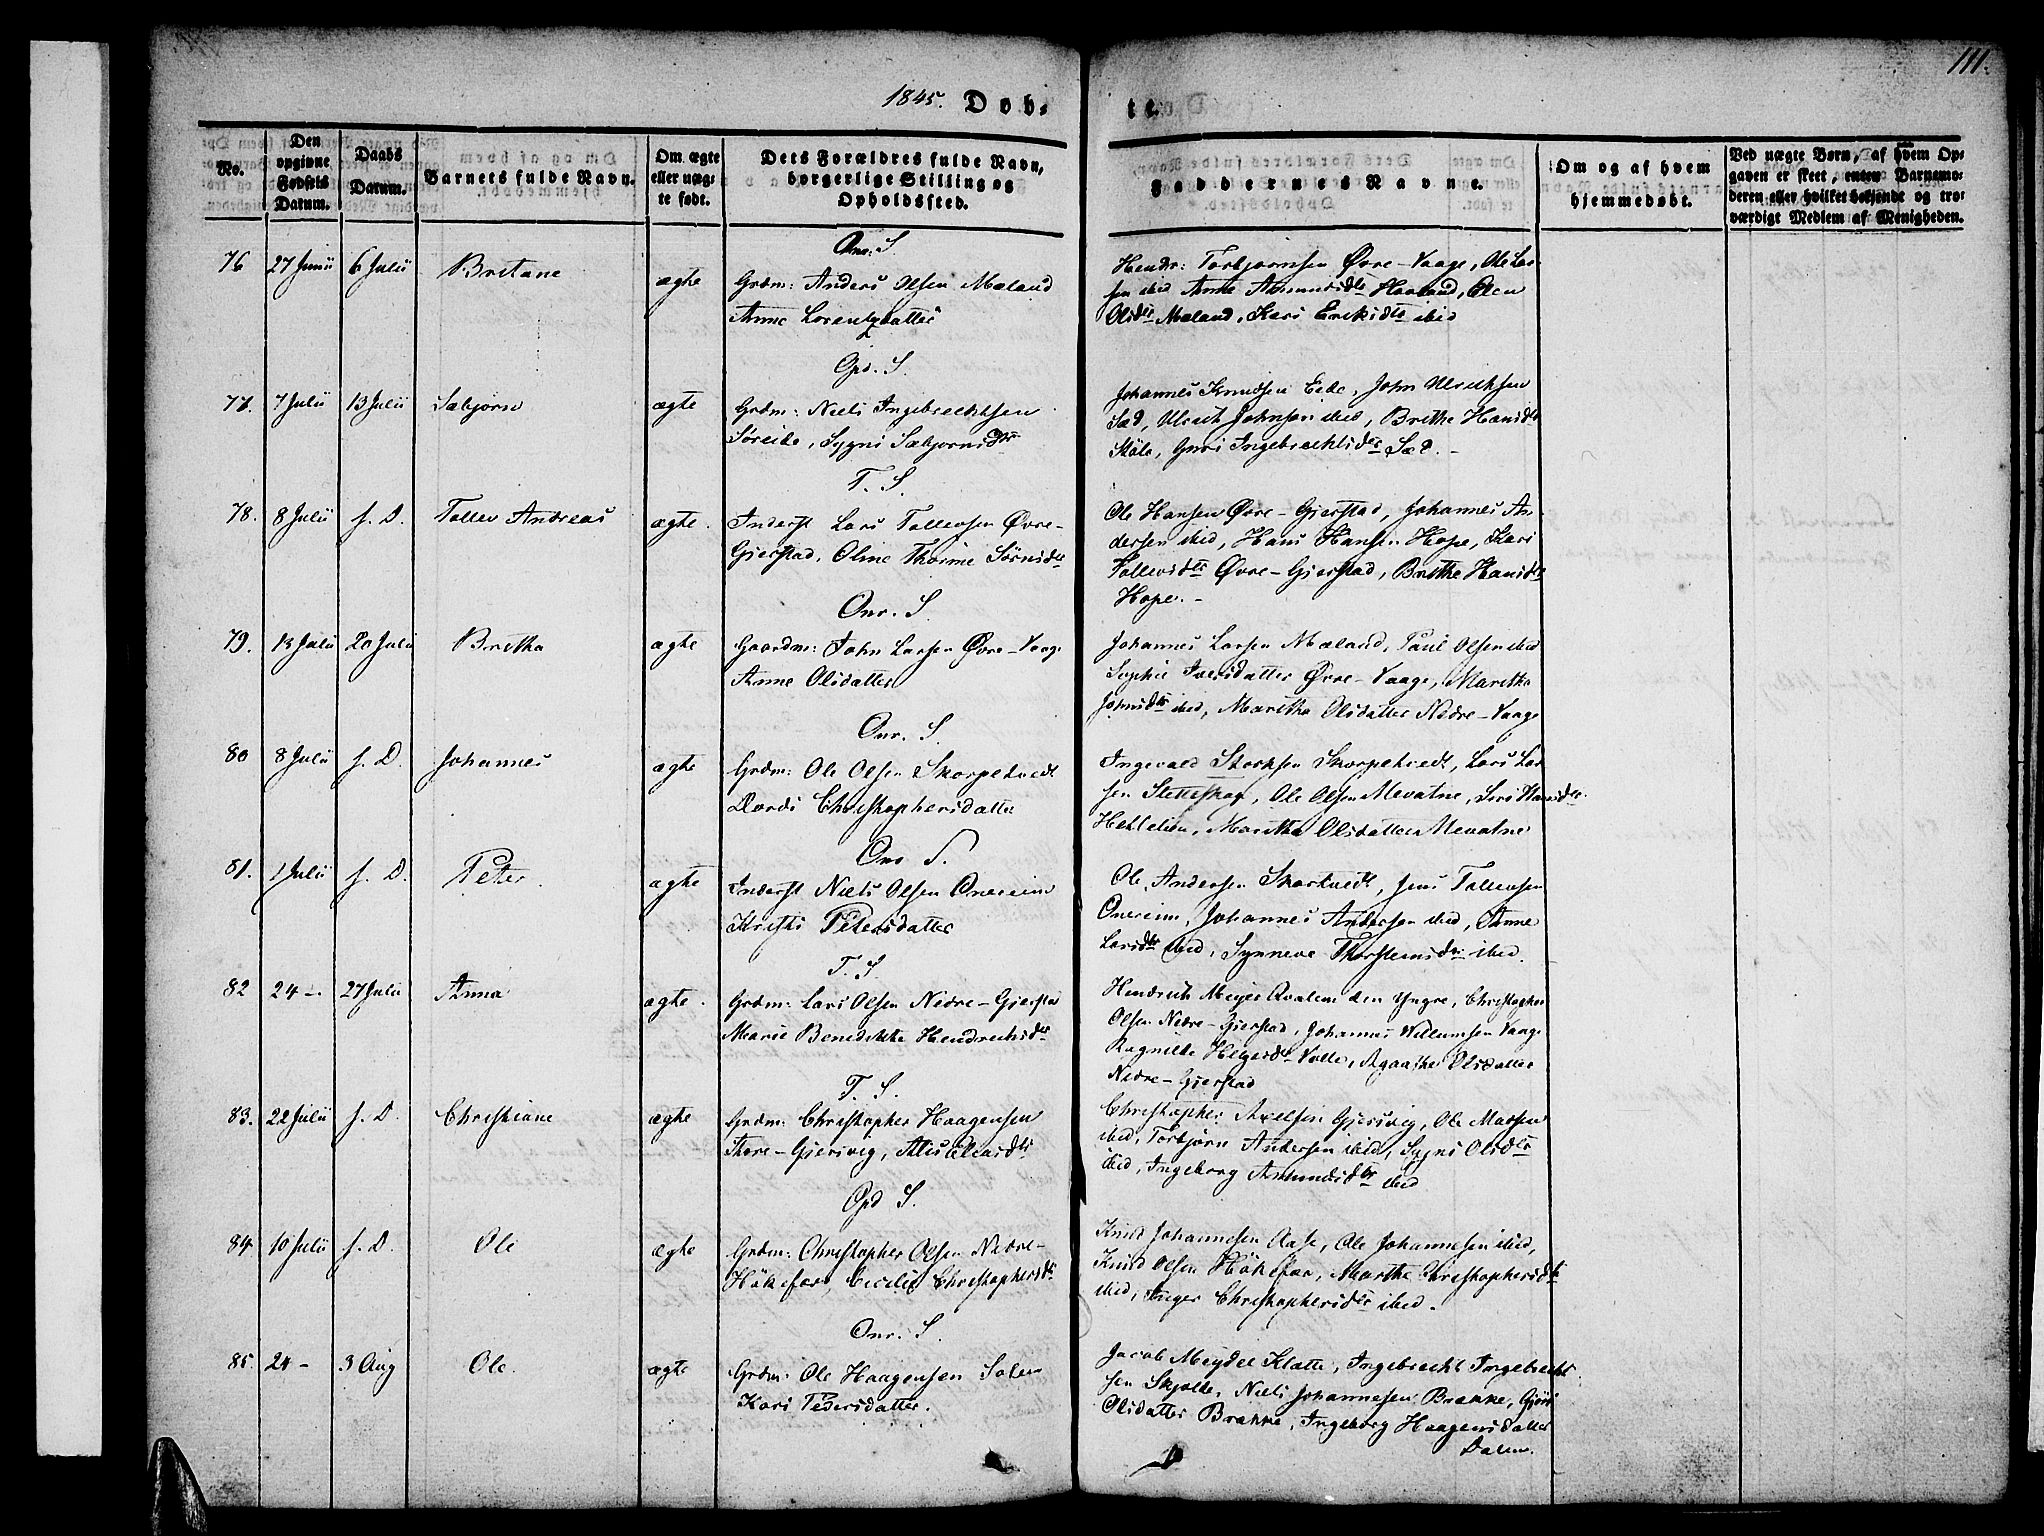 111.
1845. Døb-
te.
No.
Den
opgivne
Fødsels
Datum.
Daabs
Datum.
Barnets fulde Navn.
Om ægte
eller uæg-
te født.
Dets Forældres fulde Navn,
borgerlige Stilling og
Opholdssted.
Faddernes Navne.
Om og af hvem
hjemmedøbt.
Ved uægte Børn, af hvem Op-
gaven er skeet, enten Barnemo-
deren eller hvilket bekjendt og tro-
værdigt Medlem af Menigheden.
Onr. S.
76 27 Junii 6 Julii Britane ægte
Grdm: Anders Olsen Mæland
Anne Lorentzdatter
Hendr: Torbjørnsen Øvre-Vaage, Ole Lar-
sen ibid Anna Amundsdtr Havland, Elen
Olsdtr Mæland, Kari Eriksdtr ibid
Opd. S.
77. 7 Julii 13 Julii Sæbjørn ægte
Grdm: Niels Ingebrechtsen
Søreide, Sygni Sæbjørnsdtr
Johannes Knudsen Eide, John Ulrichsen
Sæd, Ulrich Johnsen ibid, Brithe Hansdtr
Skåle, Guri Ingebrechtsdtr Sæd.-
T. S.
78. 8 Julii s. D. Tollev Andreas ægte.
Inderst Lars Tollevsen Øvre-
Gjerstad, Oline Thorine Sørnsdtr
Ole Hansen Øvre-Gjerstad, Johannes An-
dersen ibid, Hans Hansen Hope, Kari
Tollevsdtr Øvre-Gjerstad, Brithe Hansdtr
Hope.-
Onr. S.
79. 13 Julii 20 Julii Britha ægte
Gaardm: John Larsen Øvre-Vaage
Anne Olsdatter
Johannes Larsen Mæland, Paul Olsen ibid
Sophie Iversdatter Øvre-Vaage, Maritha
Johnsdtr ibid, Maritha Olsdatter Nedre-Vaage
Onr. S.
80 8 Julii s. D. Johannes ægte
Grdm: Ole Olsen Skorpetvedt
Dordi Christophersdatter
Ingevald Skorpetvedt, Lars Lar-
sen Sletteskog, Ole Olsen Mevatne, Siri Hansdtr
Hetlelien, Maritha Olsdatter Mevatne
Onr S.
81. 1 Julii s. D. Peter. ægte
Inderst Niels Olsen Onereim
Kristi Petersdatter
Ole Andersen Skartvedt, Jens Tollevsen
Onereim, Johannes Andersen ibid, Anne
Larsdtr ibid, Synneve Thorsteinsdtr ibid.
T. S.
82 24- 27 Julii Anna ægte.
Grdm: Lars Olsen Nedre-Gjerstad
Marie Benedikte Hendrichsdtr
Hendrich Meyer Qvalem den Yngre, Christopher
Olsen Nedre-Gjerstad, Johannes Willumsen Vaage
Ragnilde Helgesdtr Valle, Agaathe Olsdatter
Nedre-Gjerstad
T. S.
83. 22 Julii s. D. Christiane ægte
Grdm: Christopher Haagensen
Store-Gjersvig, Alis Eliasdtr
Christopher Axelsen Gjersvig, Ole Madsen
ibid, Torbjørn Andersen ibid, Sygni Olsdtr
ibid, Ingeborg Amundsdtr ibid
Opd S.
84. 10 Julii s. D. Ole ægte
Grdm: Christopher Olsen Nedre-
Høkefær, Cecilie Christophersdtr
Knud Johannesen Aase, Ole Johannesen ibid,
Knud Olsen Høkefær, Martha Christophersdtr
ibid, Inger Christophersdtr ibid.
Onr. S.
85. 24- 3 Aug Ole. ægte
Grdm: Ole Haagensen Dalen
Kari Pedersdatter.
Jacob Meydel Klatte, Ingebrecht Ingebrecht-
sen Skjelde, Niels Johannesen Brakke, Gjøri
Olsdatter Brakke, Ingeborg Haagensdatter
Dalen.